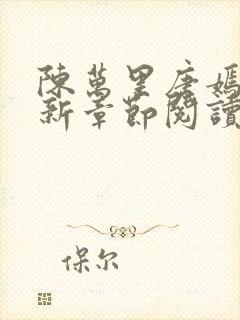 陳萬里唐嫣
新章節閱讀
保尔